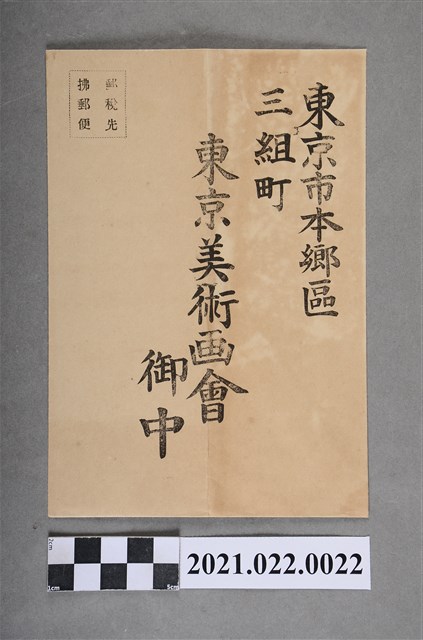 東京市本鄉區
三組町
東京美術画會
御中
郵稅先
拂郵便
2cm
1cm
5cm
2021.022.0022